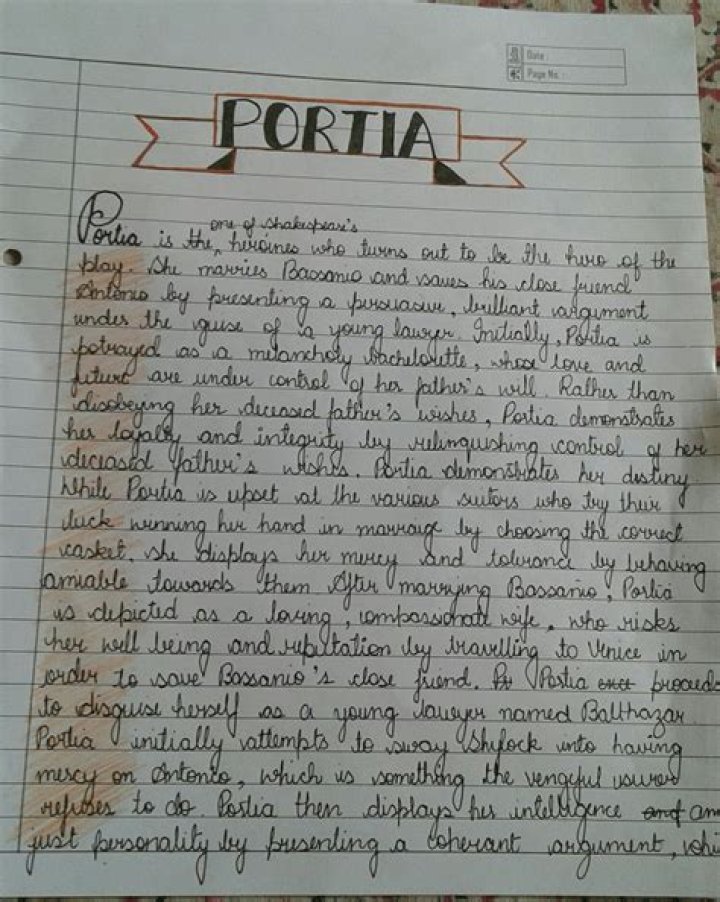 Date
Page No.
PORTIA
one of Shakespeare's
Portia is the heroines who turns out to be the hero of the
play. She marries Bassanio and saves his close friend
Antonio by presenting a persuasive, brilliant argument
under the guise of a young lawyer. Initially, Portia is
potrayed as a melancholy bachelorette, whose love and
future are under control of her father's will. Rather than
disobeying her deceased father's wishes, Portia demonstrates
her loyalty and integrity by relinquishing control of her
deceased father's wishes. Portia demonstrates her destiny
While Portia is upset at the various suitors who try their
luck winning her hand in marraige by choosing the correct
casket. She displays her mercy and tolerance by behaving
amiable towards them After marrying Bassanio, Portia
is depicted as a loving, compassionate wife, who risks
her well being and reputation by travelling to Venice in
order to save Bassanio's close friend. Portia proceeds
to disguise herself as a young lawyer named Balthazar
Portia initially attempts to sway Shylock into having
mercy on Antonio, which is something the vengeful usurer
refuses to do. Portia then displays her intelligence and an
just personality by presenting a coherant argument, whi